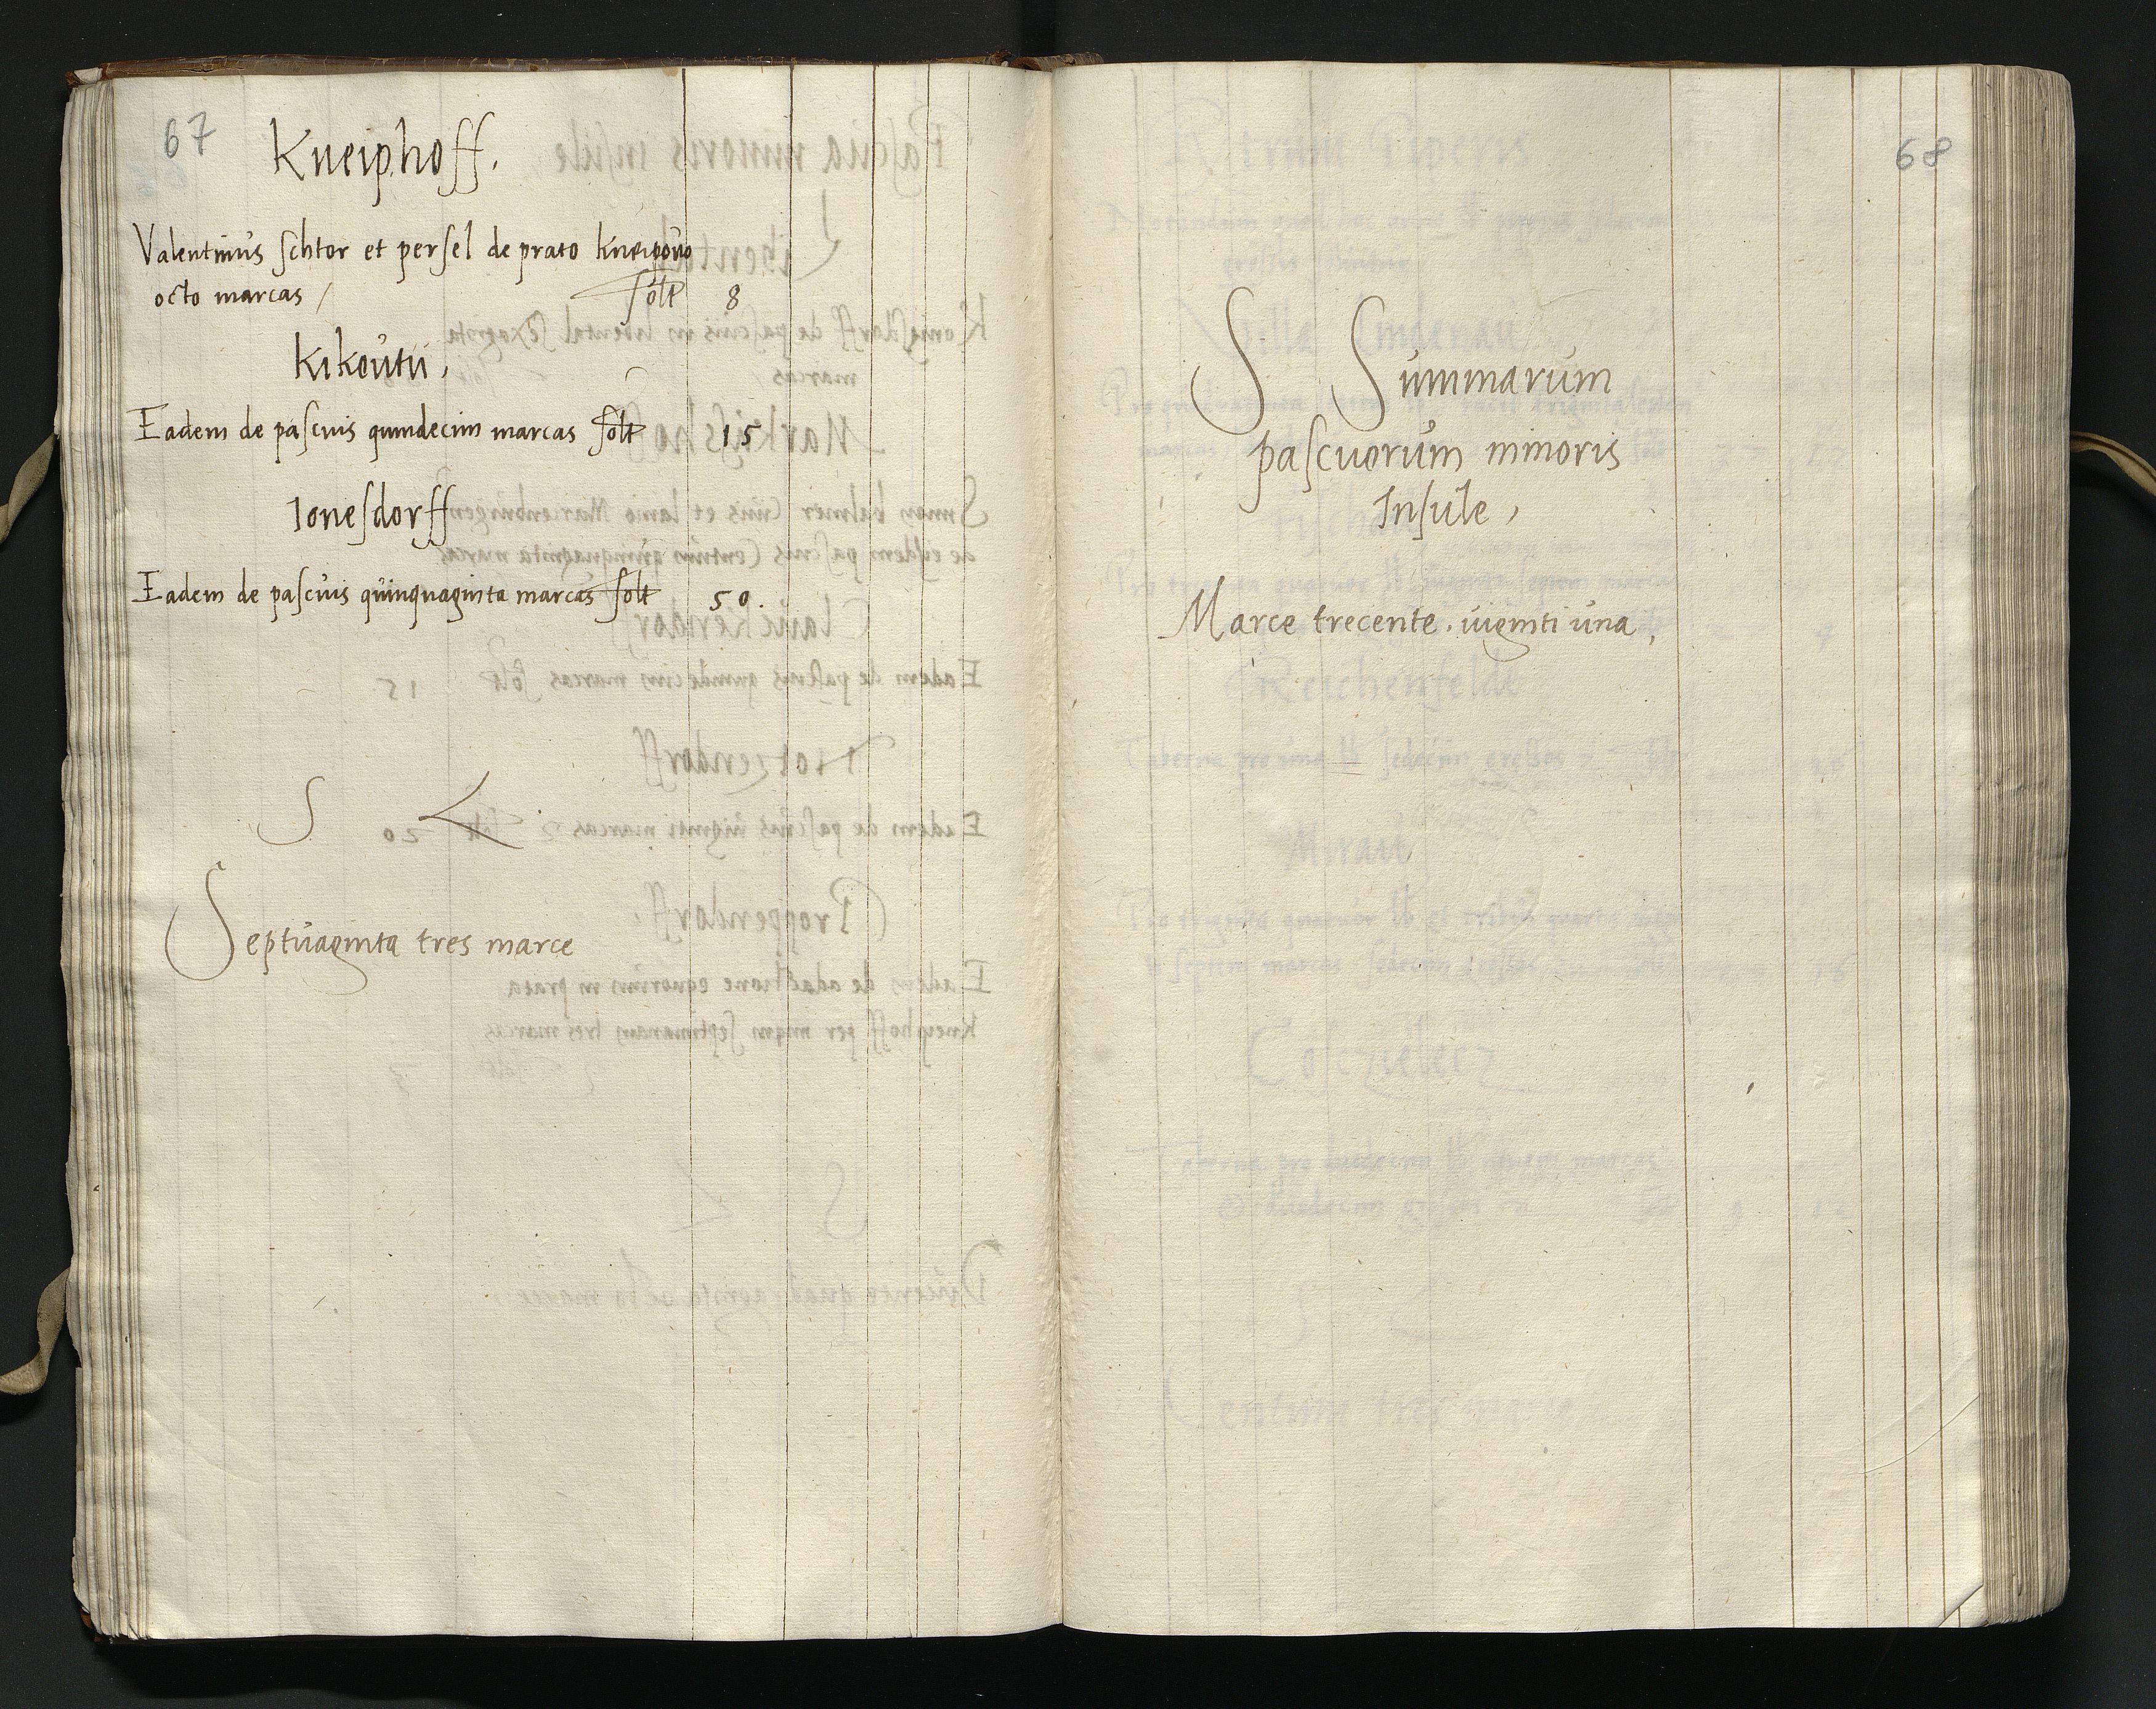 67
Kneiphoff.
Valentinus schtor et persel de prato kneipovo
octo marcas / solt 8
Kikoutii,
Eadem de pascuis quindecim marcas solt 15
Ionesdorff
Eadem de pascuis quinquaginta marcas solt 50.
S L
Septuaginta tres marce
68
S Summarum
pascuorum minoris
Insule,
Marce trecente. viginti una,